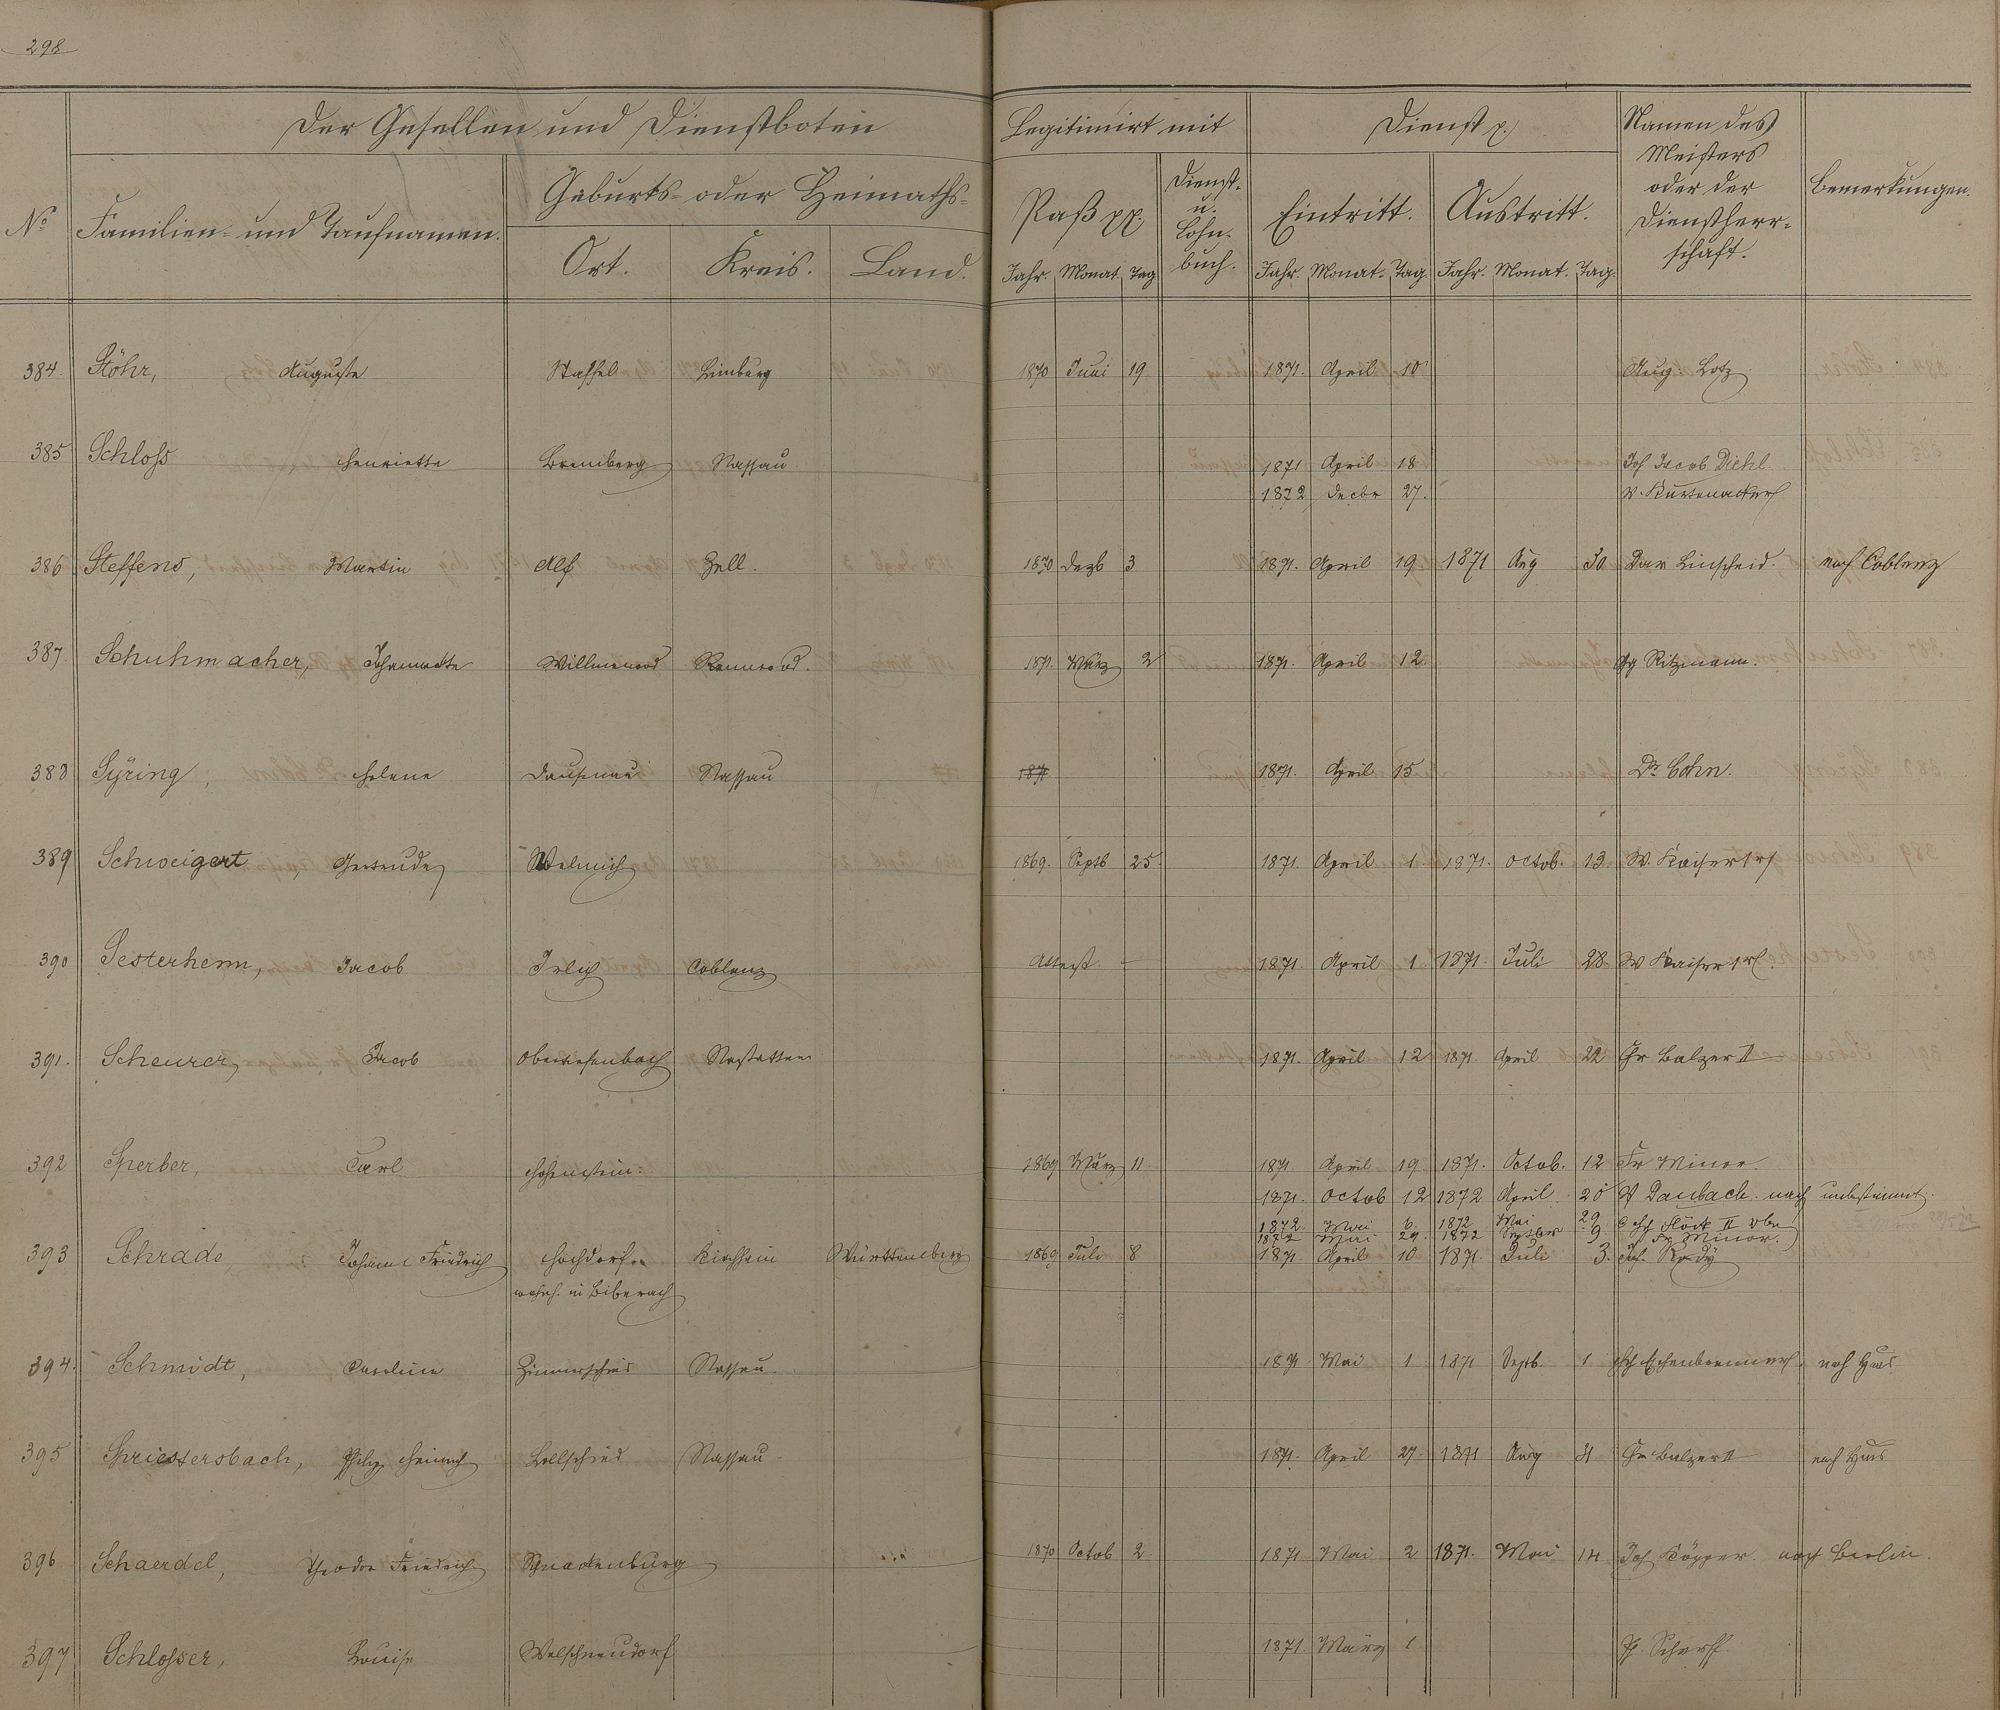 298
Der Gesellen und Dienstboten Legitimirt mit Dienst p. Namen des Meisters oder der Dienstherrschaft. Bemerkungen.
No Familien- und Taufnamen. Geburts- oder Heimaths- Paß pp. Dienst- u. Lohn- buch. Eintritt. Austritt.
Ort. Kreis. Land. Jahr. Monat. Tag Jahr. Monat. Tag. Jahr. Monat. Tag.
384. Stöhr, Auguste Staffel Limburg 1870 Juni 19 1871. April 10 Aug. Lotz
385 Schloss Henriette Bremberg Nassau 1871 April 18 Joh Jacob Diehl
1872 Decbr 27. W. Kurtenacker
386 Steffens, Martin Alf Zell. 1870 Dezb 3 1871. April 19 1871 Aug 30 Linscheid. nach Coblenz
387 Schuhmacher, Johannette Willmenrod Rennerod. 1871. März 2 1871. April 12 Ritzmann.
388 Syring, Helene Dausenau Nassau 187 1871. April 15 Dr Cohn.
389 Schweigert, Gertrude Welmich 1869. Septb 25 1871. April 1 1871. Octob. 13 W. Kaiser
390 Sesterhenn, Jacob Irlich Coblenz Attest. – 1871. April 1 1871. Juli 28. W Kaiser
391. Scheurer, Jacob Oberwesenbach Nastatten 1871. April 12 1871. April 22 Chr Balzer II
392 Sperber, Carl Hohenstein. 1869 März 11 1871. April 19 1871. Octob. 12 Fr Minor.
1871. Octob 12 1872 April 20 Daubach. nach unbestimmt.
1872. Mai 6. 1872 Mai 29 Flöck II
1872 Mai 29. 1872 9 Fr Minor.
393 Schrade, Johann Friedrich Hochdorf Kirchheim Württemberg 1869 Juli 8 1871. April 10 1871. Juli 3. Joh.
wohnh. in Biberach
394. Schmidt, Caroline Zimmerschied Nassau. 1871 Mai 1 1871 Septb. 1 nach Haus
395 Spriestersbach, Philip Heinrich Lollschied Nassau. 1871. April 27. 1871 Aug 31 Chr Balzer II nach Haus
396 Schaerdel, Theodor Friedrich Schnackenburg 1870 Octob 2 1871 Mai 2 1871. Mai 14 Joh Köpper. nach Berlin.
397 Schlosser, Louise Welschneudorf 1871. März 1 Scharff